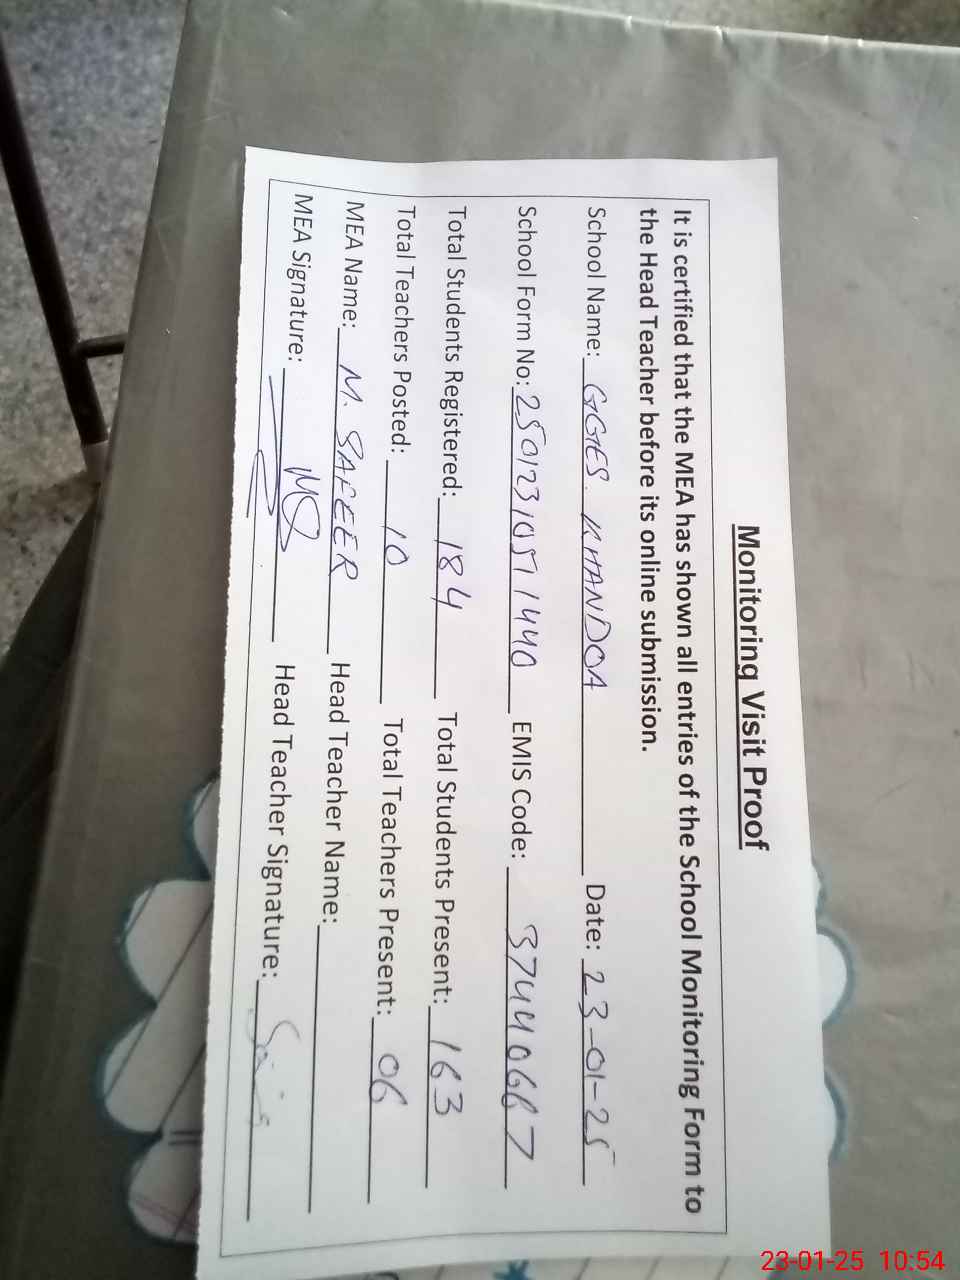 Monitoring Visit Proof
It is certified that the MEA has shown all entries of the School Monitoring Form to
the Head Teacher before its online submission.
School Name: GGES. KHANDOA Date: 23-01-25
School Form No: 250123101571440 EMIS Code: 37440667
Total Students Registered: 184 Total Students Present: 163
Total Teachers Posted: 10 Total Teachers Present: 06
MEA Name: M. SAFEER Head Teacher Name:
MEA Signature: Head Teacher Signature:
23-01-25 10:54